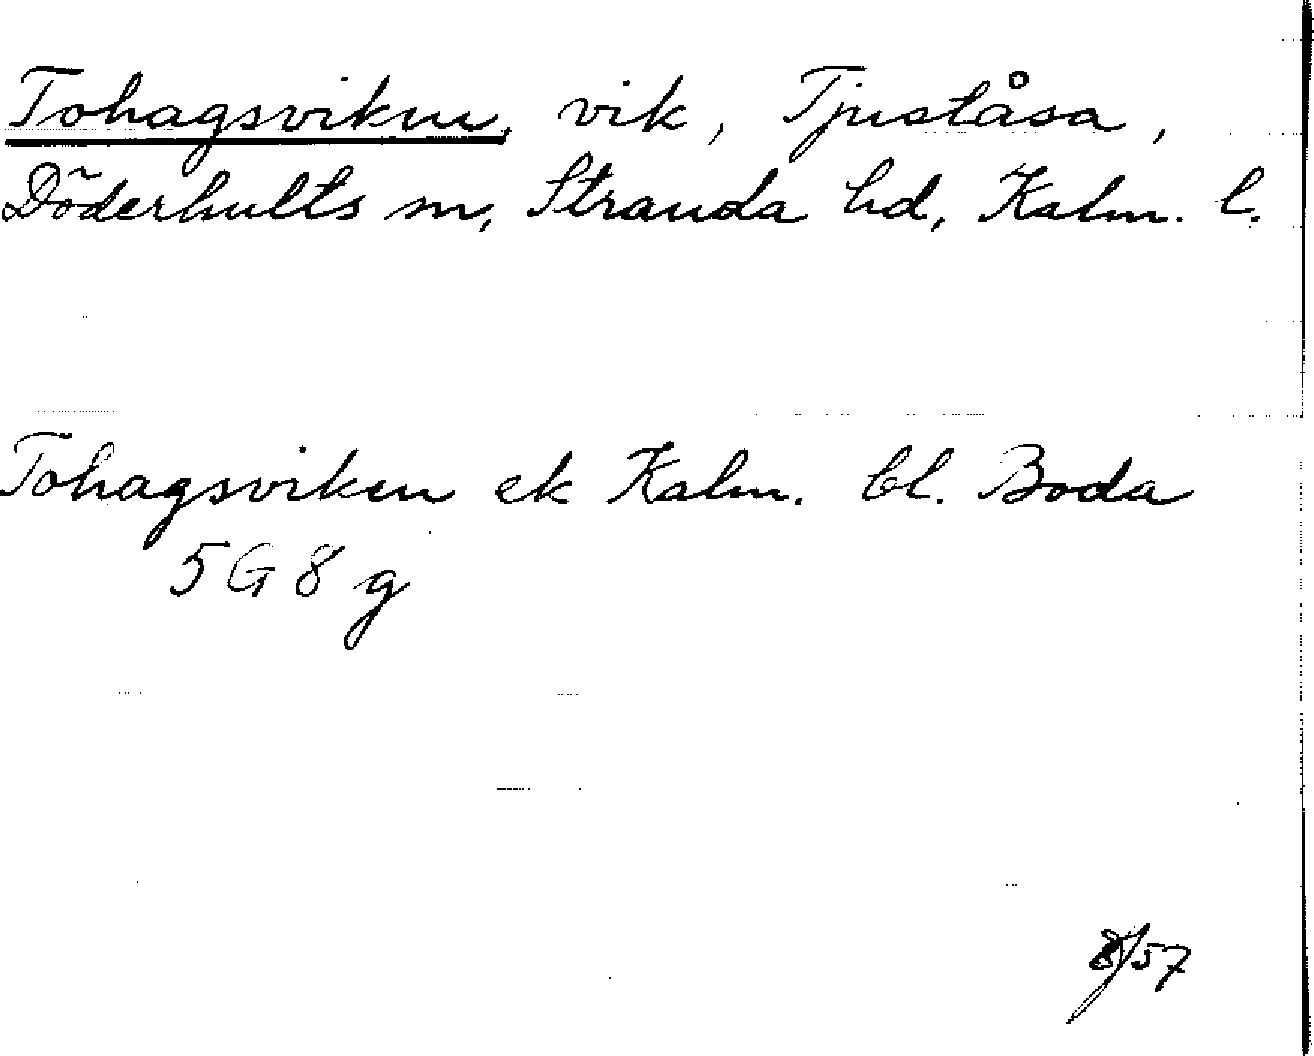 Tohagsviken, vik, Tjuståsa,
Döderhults sn, Stranda hd, Kalm. l.
Tohagsviken ek Kalm. bl. Boda
5G8g
8/57